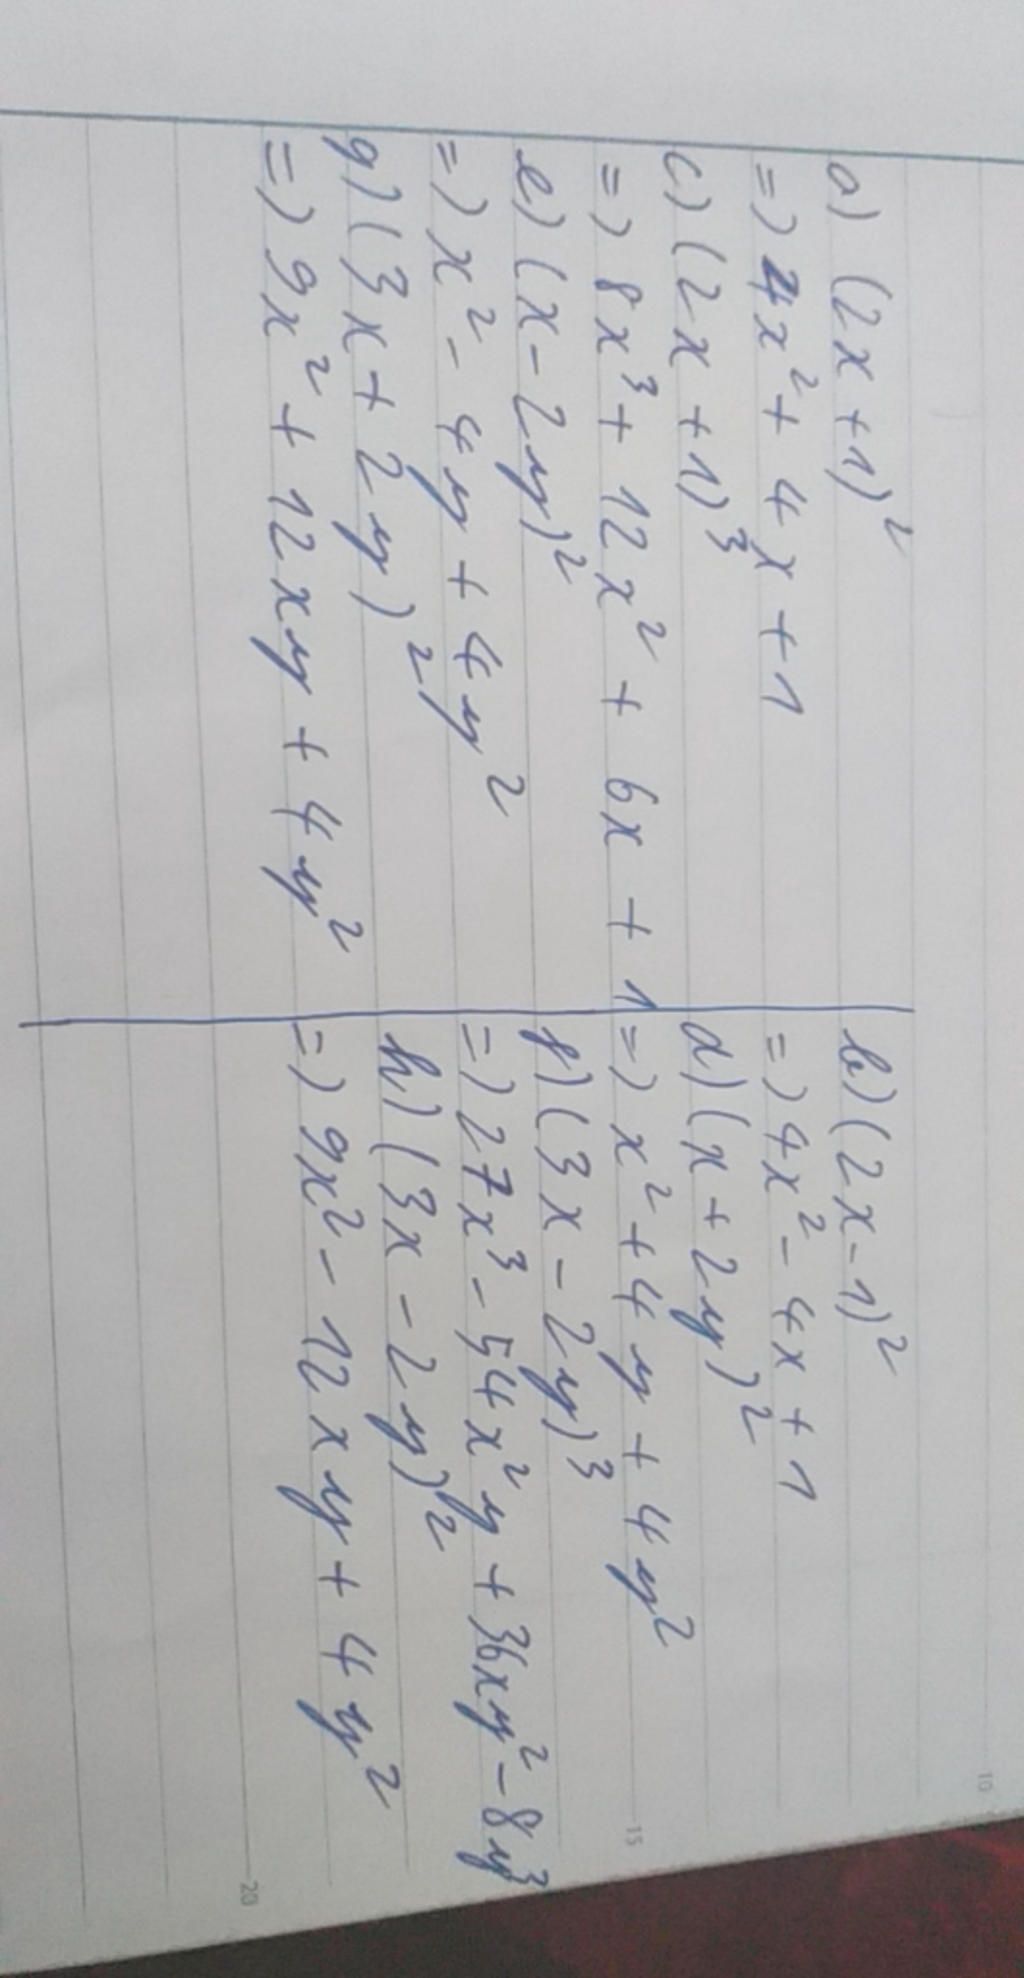 a) (2x+1)²
=) 4x² + 4x + 1
c) (2x+1)³
=) 8x³ + 12x² + 6x + 1
e) (x-2y)²
=) x² - 4y + 4y²
g) (3x+2y)²
=) 9x² + 12xy + 4y²
b) (2x-1)²
=) 4x² - 4x + 1
d) (x+2y)²
=) x² + 4y + 4y²
f) (3x-2y)³
=) 27x³ - 54x²y + 36xy² - 8y³
h) (3x-2y)²
=) 9x² - 12xy + 4y²
10
15
20